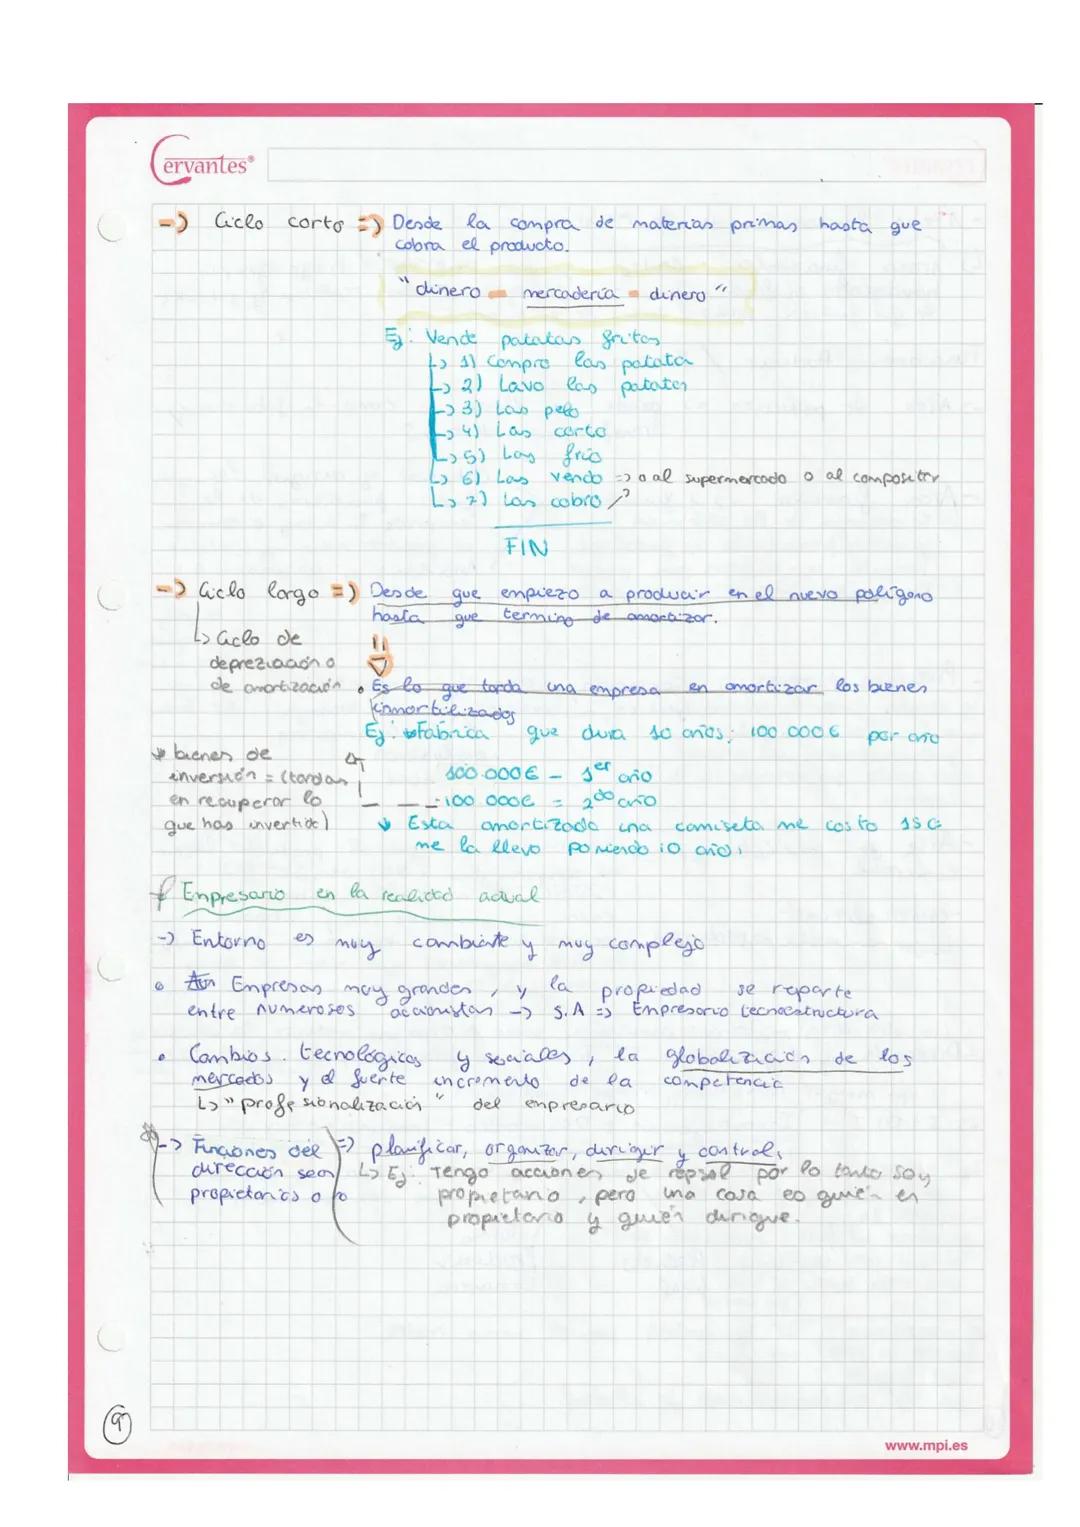 Cervantes®
-> Ciclo corto => Desde la compra de materias primas hasta que
cobra el producto.
"dinero - mercadería - dinero"
Ej: Vende patatas fritas
↳ 1) Compro las patata
↳ 2) Lavo las patatas
↳ 3) Las pelo
↳ 4) Las corto
↳ 5) Las frio
↳ 6) Las vendo => o al supermercado o al
↳ 7) Las cobro
FIN
-> Ciclo largo => Desde que empiezo a producir en el nuevo polígono
hasta que termino de amortizar.
↳ Ciclo de
depreziación o
de amortización
• Es lo que tarda una empresa en amortizar los bienes
inmortilizados
Ej: Fabrica que dura 10 años; 100 000€ por año
bienes de
inversión = (tardan
en recuperar lo
que has invertido)
100.000€ - 1er año
100 000€ = 2do año
Esta amortizada una camiseta me costo 15€
me la llevo poniendo 10 años.
Empresario en la realidad actual
-> Entorno es muy cambiante y muy complejo
• Empresas muy grandes, y la propiedad se reparte
entre numerosos accionistas -> S.A => Empresario tecnoestructura
• Cambios tecnológicos y sociales, la globalización de los
mercados y el fuerte incremento de la competencia
↳ "profesionalización" del empresario
-> Funciones del
dirección sean
propietarios o no
=> planificar, organizar, dirigir y control.
↳ Ej: Tengo acciones de repsol por lo tanto soy
propietario, pero una cosa es quién es
propietario y quién dirigue.
9
www.mpi.es